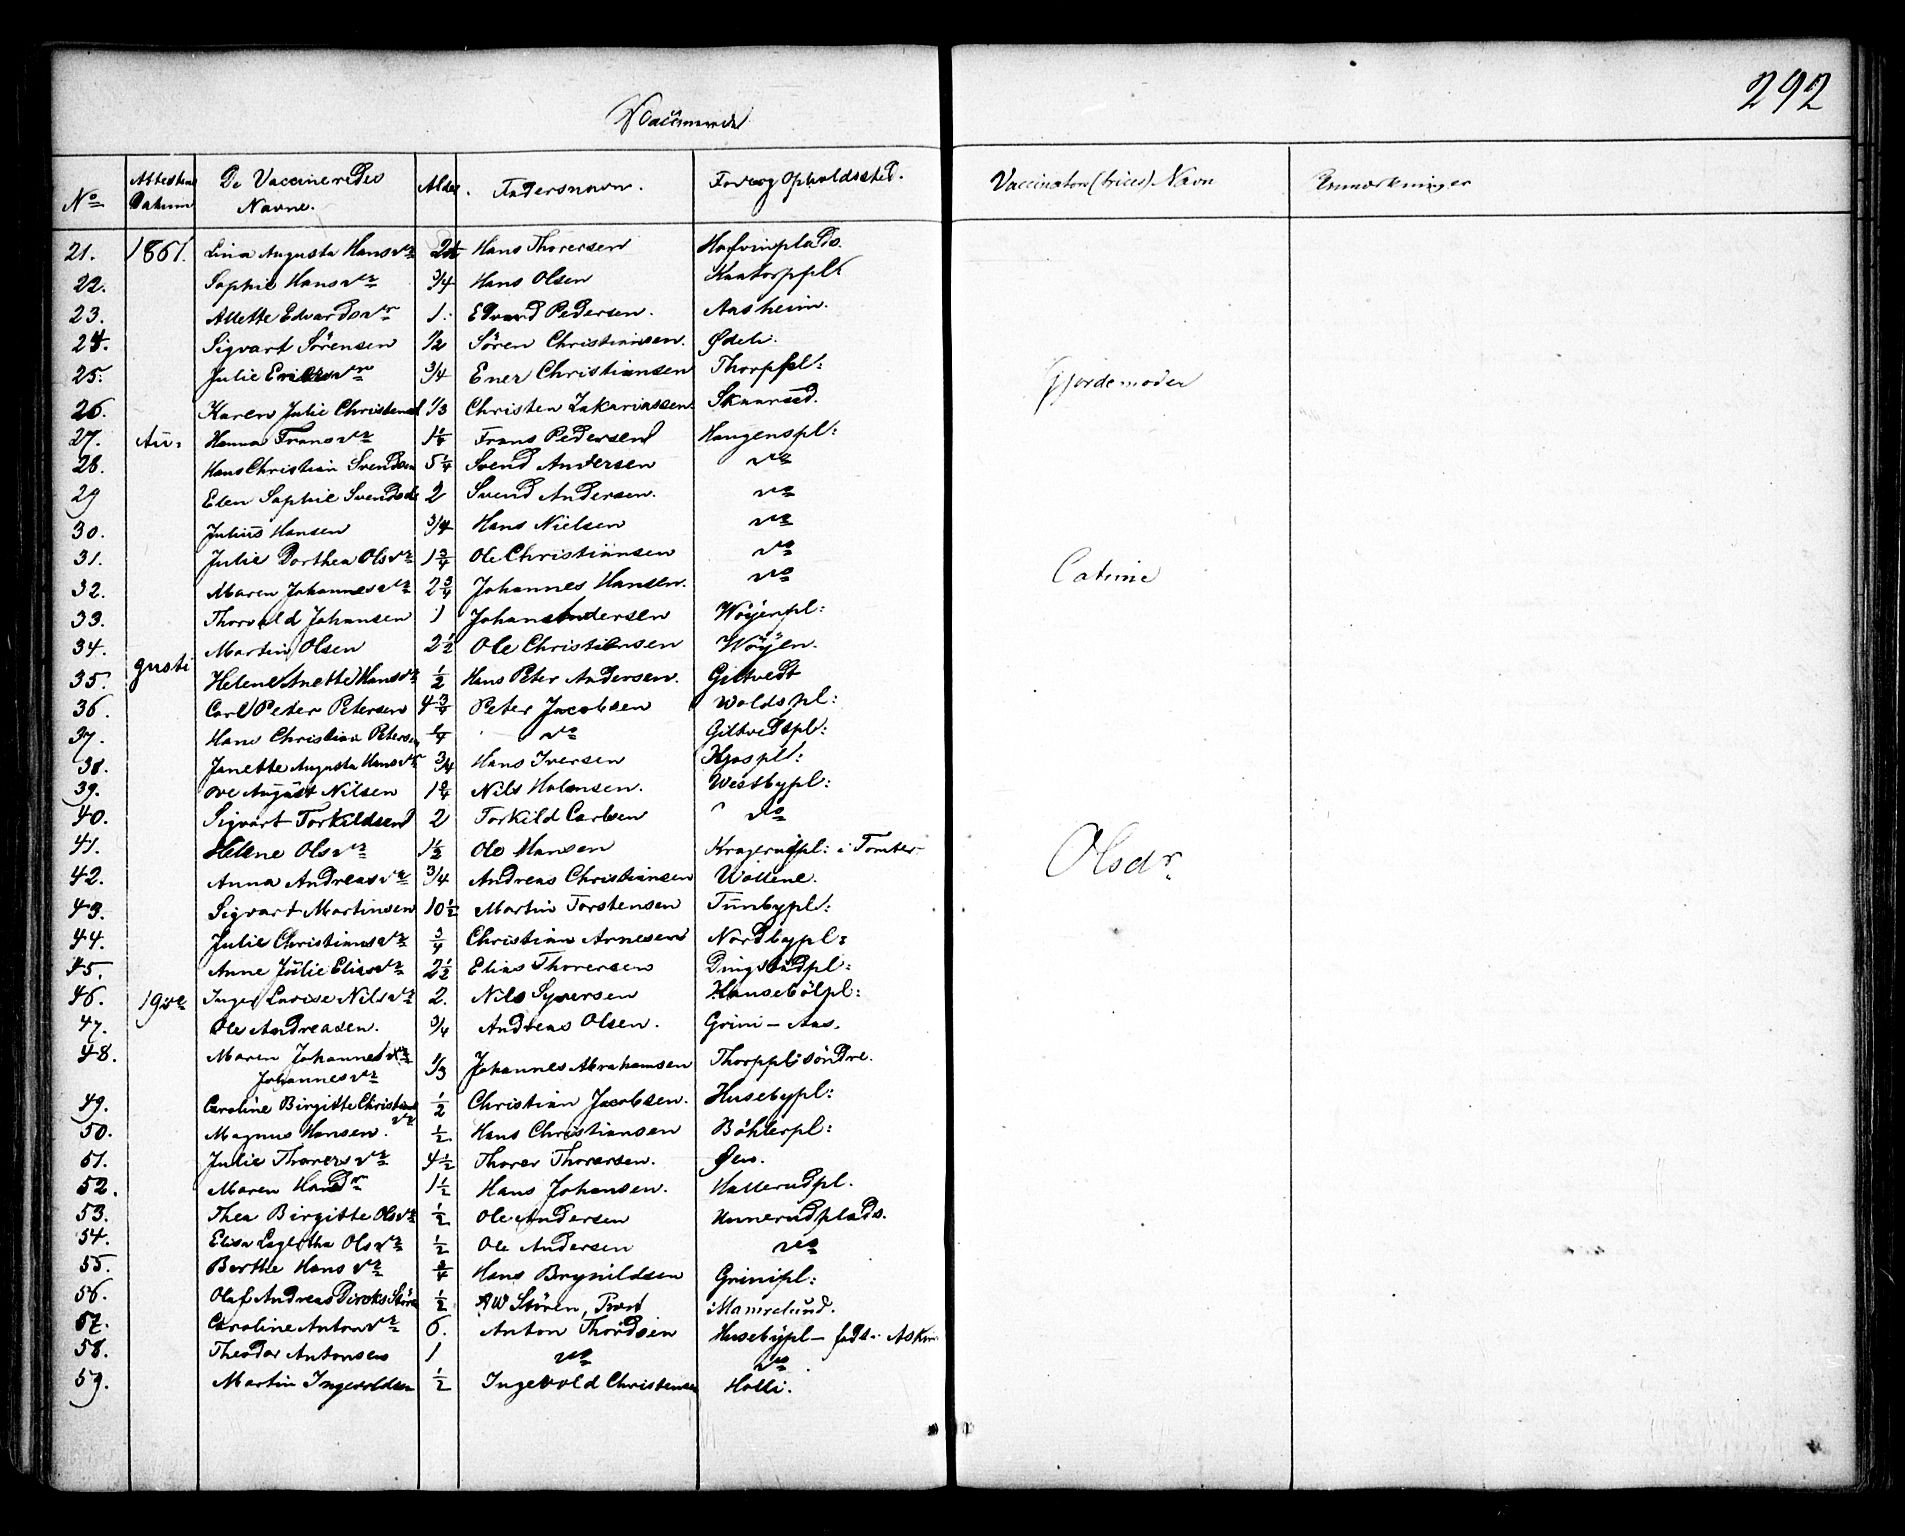 292
Vaccinerede
No Attestens Datum De Vaccineredes Navne. Alder. Faders navn. Føde og Opholdssted. Vaccinators (trices) Navn Anmærkninger
21. 1861. Lina Augusta Hansdr Hans Thoresen Hafvinplads.
22. Sophie Hansdr 3/4 Hans Olsen
23. Alette Edvardsdr 1. Edvard Pedersen. Aasheim.
24. Sigvart Sörensen 1/2 Sören Christiansen. Ødeli.
25. Julie 3/4 Ener Christiansen Thorppl:
Gjordemoder
26. Karen Julie 1/3 Christen Zakariassen. Skaarud.
27. Au- Hanna Fransdr Frans Pedersen Haugenspl:
28. Hans Christian Svendsen 5 1/4 Svend Andersen do
29 Elen Sophie 2 Svend Andersen. do
30. Julius Hansen 3/4 Hans Nielsen do
31. Julie Dorthea Olsdr 1 3/4 Ole Christiansen do
32. Maren Johannesdr 2 3/4 Johannes Hansen. do
Catrine
33. Thorvald Johansen 1 Johan Andersen Wöyenpl:
34. Martin Olsen 2 1/2 Ole Christiansen Wöyen.
gusti
35. Helene Anette Hansdr 1/2 Hans Peter Andersen. Giltvedt
36. Carl Peder Petersen 4 3/4 Peter Jacobsen Woldspl:
37. Hans Christian Petersen do Giltvedtpl:
38. Janette Augusta Hansdr 3/4 Hans Iversen
39. Ove August Nilsen 1 3/4 Nils Halvnsen. Westbypl:
40. Sigvart Torkildsen 2 Torkild Carlsen do
41. Helene Olsdr 1 1/2 Ole Hansen Kragerudpl: i Tomter
Olsdr.
42. Anna Andreasdr 3/4 Andreas Christiansen Wollene.
43. Sigvart Martinsen 10 1/2 Martin Torstensen Tunbypl:
44. Julie Christiansdr 3/4 Christian Arnesen Nordbypl:
45. Anne Julie Eliasdr 2 1/2 Elias Thoresen
46. 19de Inger Lovise Nilsdr 2. Nils Syversen
47. Ole Andreasen. 3/4 Andreas Olsen. Grini - Aas.
48. Maren Johannesdr
Johannesdr 1/3 Johannes Abrahamsen Thorppl: söndre.
49. Caroline Birgitte Christiansdr 1/2 Christian Jacobsen. Husebypl:
50. Magnus Hansen. 1/2 Hans Christiansen Böhlerpl:
51. Julie Thoresdr 4 1/2 Thorer Thorersen. Øen.
52. Maren Hansdr 1 1/2 Hans Johansen. Hallerudpl.
53. Thea Birgitte Olsdr 1/2 Ole Andersen Unnerudplads.
54. Elisa Olsdr 1/2 Ole Andersen do
55. Berthe Hansdr 3/4 Hans Brynildsen Grinipl:
56. Olaf Andreas Dircks Stören 1/2 AW Stören, Provst i Mamrelund.
57. Caroline Antondr 6. Anton Thordsen Husebypl - föds. Askim
58. Theodor Antonsen 1 do do
59. Martin Ingevoldsen 1/2 Ingevold Christensen Holli.